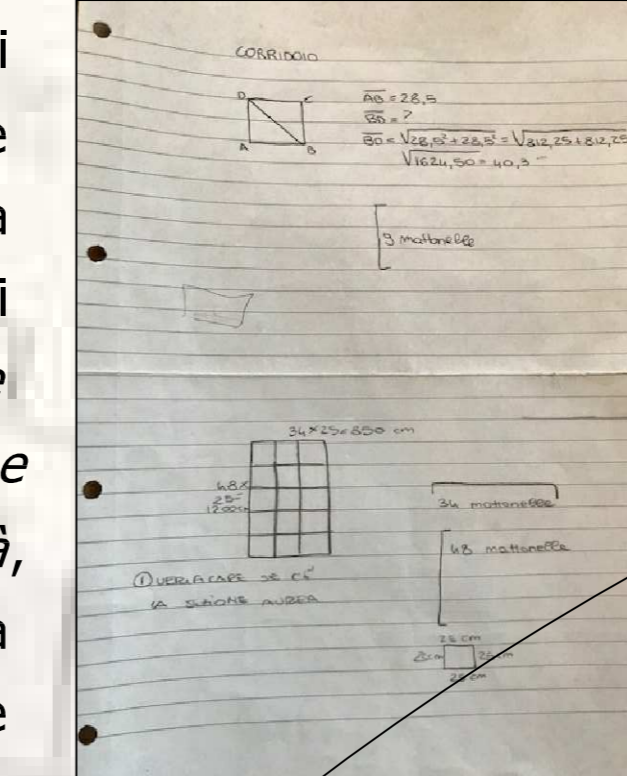 i
e
a
i
e
e
à,
a
e
CORRIDOIO
D C
A B
AB = 28,5
BD = ?
BD = √28,5²+28,5² = √812,25+812,25
√1624,50 = 40,3
9 mattonelle
34×25=850 cm
48×
25=
1200cm
34 mattonelle
48 mattonelle
① VERIFICARE SE C'È
LA SEZIONE AUREA
25 cm
25cm 25cm
25 cm